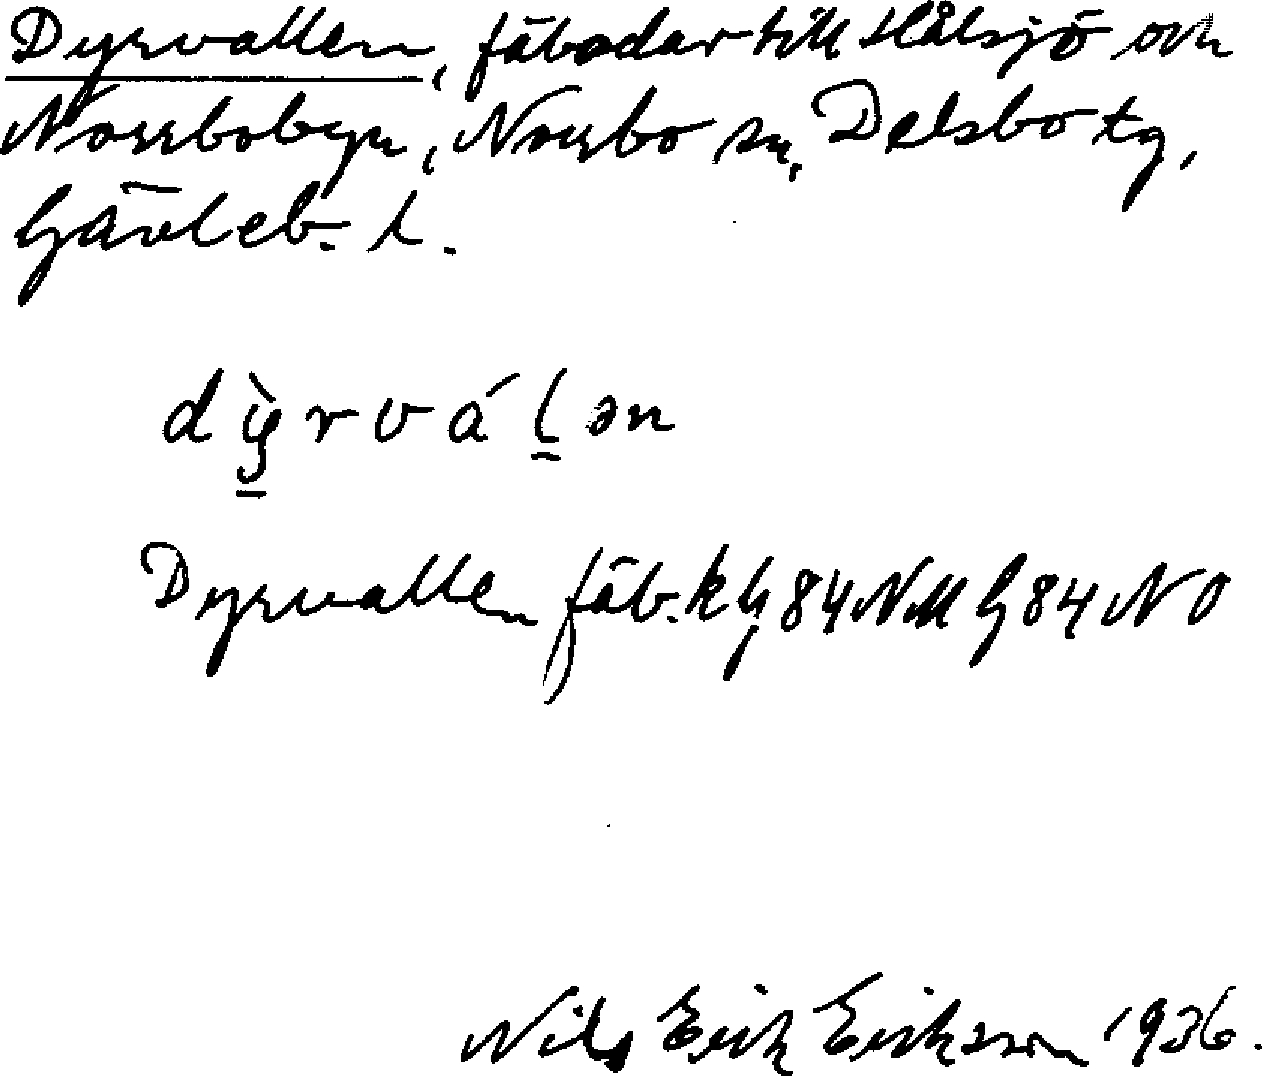 Dyrvallen, fäbodar till Hålsjö och
Norrbobyn, Norrbo sn, Delsbo tg,
Gävleb. l.
dỳ̠rvál̠ən
Dyrvallen fäb. k G 84 NV G 84 NO
Nils Erik Eriksson 1936.